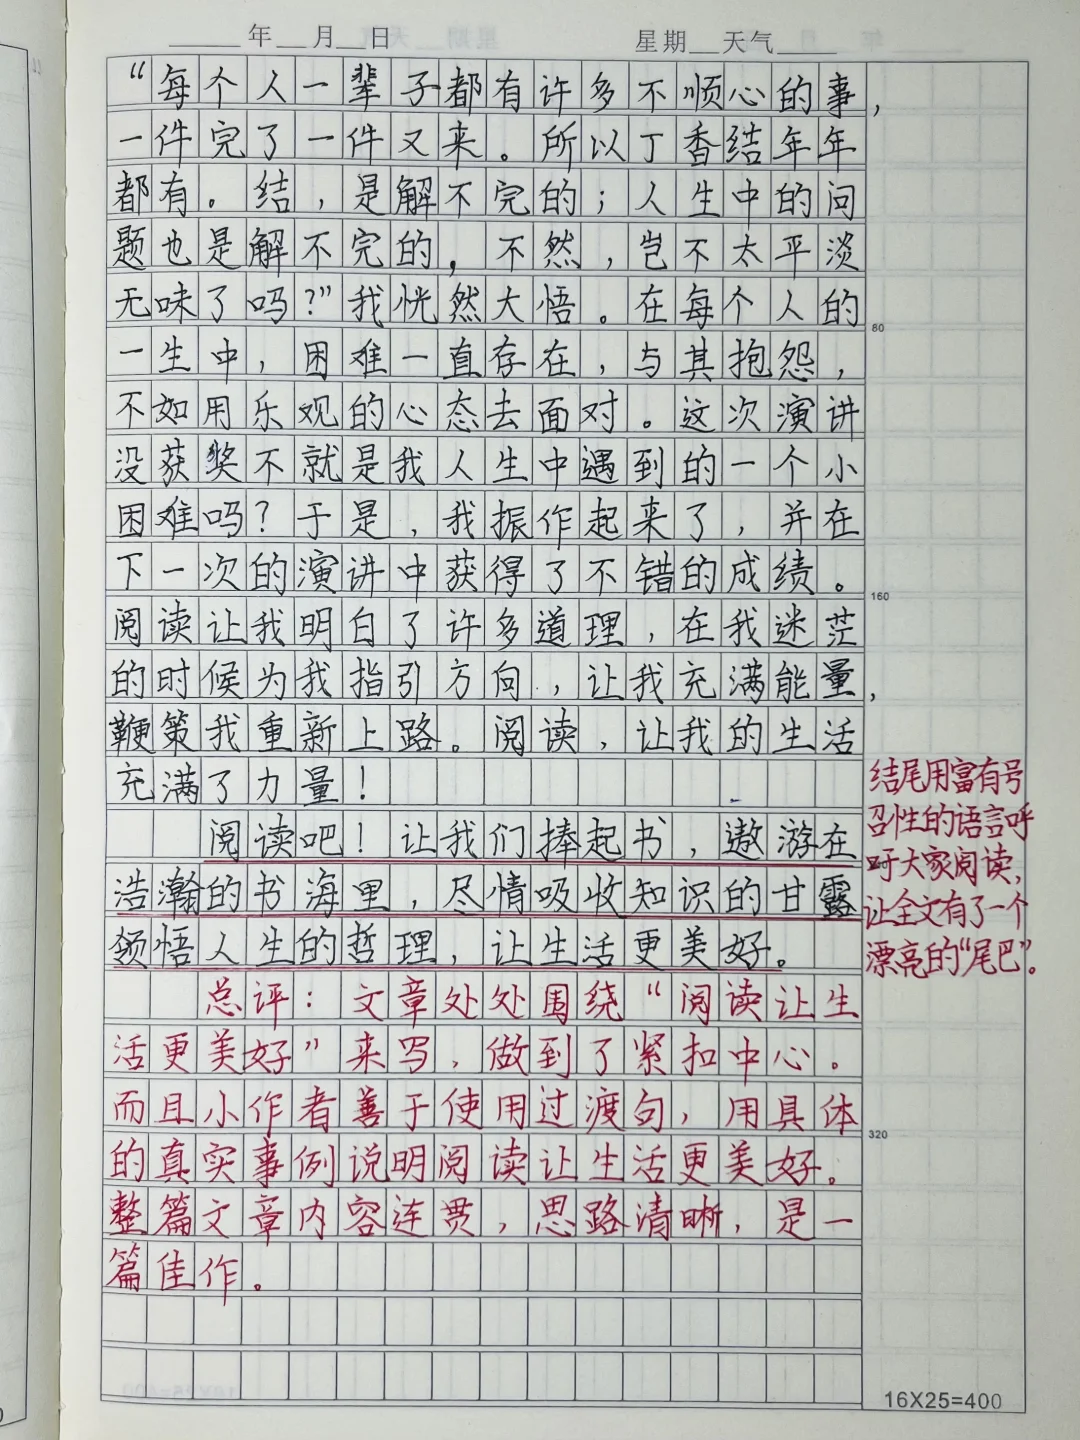 年 月 日 星期 天气
“每个人一辈子都有许多不顺心的事，
一件完了一件又来。所以丁香结年年
都有。结，是解不完的；人生中的问
题也是解不完的，不然，岂不太平淡
无味了吗？”我恍然大悟。在每个人的
80
一生中，困难一直存在，与其抱怨，
不如用乐观的心态去面对。这次演讲
没获奖不就是我人生中遇到的一个小
困难吗？于是，我振作起来了，并在
下一次的演讲中获得了不错的成绩。
160
阅读让我明白了许多道理，在我迷茫
的时候为我指引方向，让我充满能量，
鞭策我重新上路。阅读，让我的生活
充满了力量！
阅读吧！让我们捧起书，遨游在
浩瀚的书海里，尽情吸收知识的甘露
领悟人生的哲理，让生活更美好。
结尾用富有号
召性的语言呼
吁大家阅读，
让全文有了一个
漂亮的“尾巴”。
总评：文章处处围绕“阅读让生
活更美好”来写，做到了紧扣中心。
而且小作者善于使用过渡句，用具体
320
的真实事例说明阅读让生活更美好。
整篇文章内容连贯，思路清晰，是一
篇佳作。
16X25=400